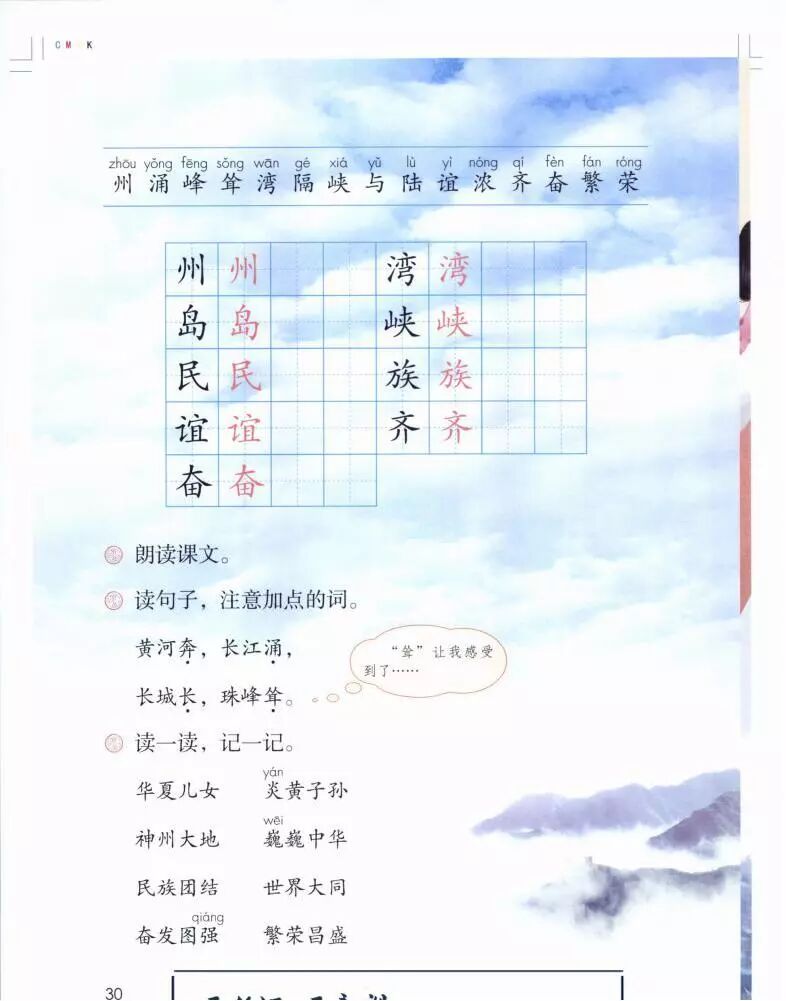 C M K
zhōu yǒng fēng sǒng wān gé xiá yǔ lù yì nóng qí fèn fán róng
州 涌 峰 耸 湾 隔 峡 与 陆 谊 浓 齐 奋 繁 荣
州 州 湾 湾
岛 岛 峡 峡
民 民 族 族
谊 谊 齐 齐
奋 奋
朗读课文。
读句子，注意加点的词。
黄河奔，长江涌，
长城长，珠峰耸。
“耸”让我感受
到了……
读一读，记一记。
yán
华夏儿女 炎黄子孙
wēi
神州大地 巍巍中华
民族团结 世界大同
qiáng
奋发图强 繁荣昌盛
30